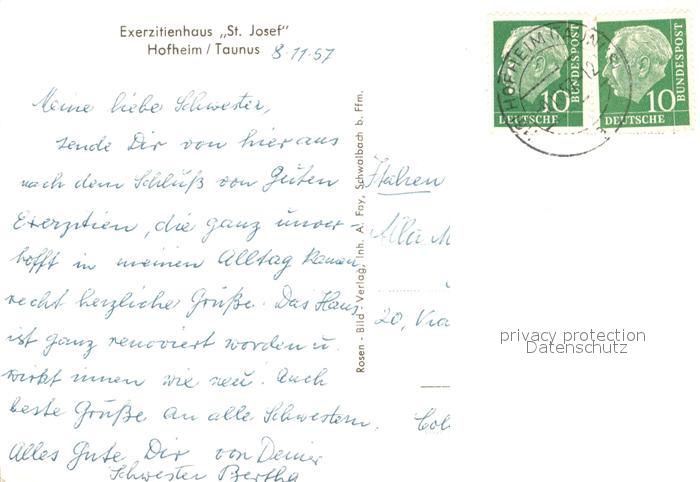 Exerzitienhaus „St. Josef"
Hofheim / Taunus 8.11.57
Meine liebe Schwester,
sende Dir von hier aus
nach dem Schluß von Guten
Exerzitien, die ganz unver-
hofft in meinen Alltag kamen,
recht herzliche Grüße. Das Haus
ist ganz renoviert worden u.
wirkt innen wie neu. Auch
beste Grüße an alle Schwestern.
Alles Gute Dir von Deiner
Schwester Bertha
Rosen - Bild - Verlag, Inh. A. Fay, Schwalbach b. Ffm.
Italien
Alla M
20, Via
Col
10
DEUTSCHE
BUNDESPOST
10
DEUTSCHE
BUNDESPOST
HOFHEIM
privacy protection
Datenschutz